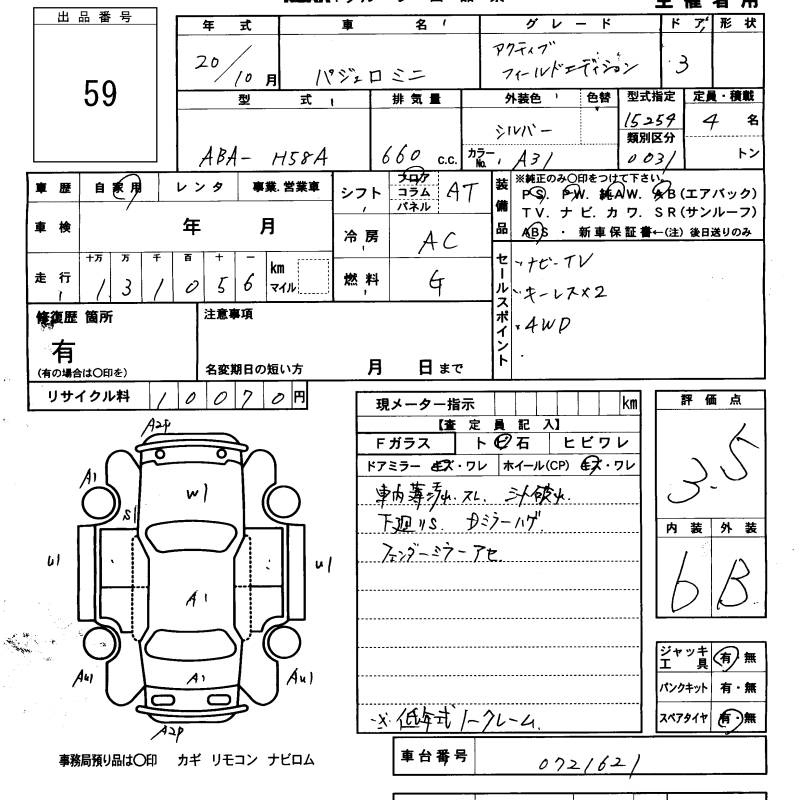 出品番号
59
年式 車名 グレード ドア 形状
20/10月 パジェロミニ アクティブ フィールドエディション 3
型式 排気量 外装色 色替 型式指定 定員・積載
ABA- H58A 660 c.c. シルバー 15259 4名
類別区分
カラーNo. A31 0031 トン
車歴 自家用 レンタ 事業.営業車
車検 年 月
走行 十万 万 千 百 十 一
1 3 1 0 5 6 km マイル
シフト フロア コラム パネル AT
冷房 AC
燃料 G
装備品
※純正のみ〇印をつけて下さい
PS. PW. 純AW. AB(エアバック)
TV. ナビ. カワ. SR(サンルーフ)
ABS ・ 新車保証書←(注) 後日送りのみ
セールスポイント
・ナビ-TV
・キーレス×2
・4WD
修復歴 箇所
有
(有の場合は〇印を)
注意事項
名変期日の短い方 月 日まで
リサイクル料 10070円
現メーター指示 km
【査定員記入】
Fガラス ト ビ 石 ヒビワレ
ドアミラー キズ・ワレ ホイール(CP) キズ・ワレ
車内薄汚れ.スレ.
下廻りS. Dミラーハゲ.
フェンダーミラーアセ.
※低年式ノークレーム.
評価点
3.5
内装 外装
b B
ジャッキ 工具 有・無
パンクキット 有・無
スペアタイヤ 有・無
車台番号 0721621
A2P
A1
W1
S1
U1
U1
A1
AU1
A1
AU1
A2P
事務局預り品は〇印 カギ リモコン ナビロム